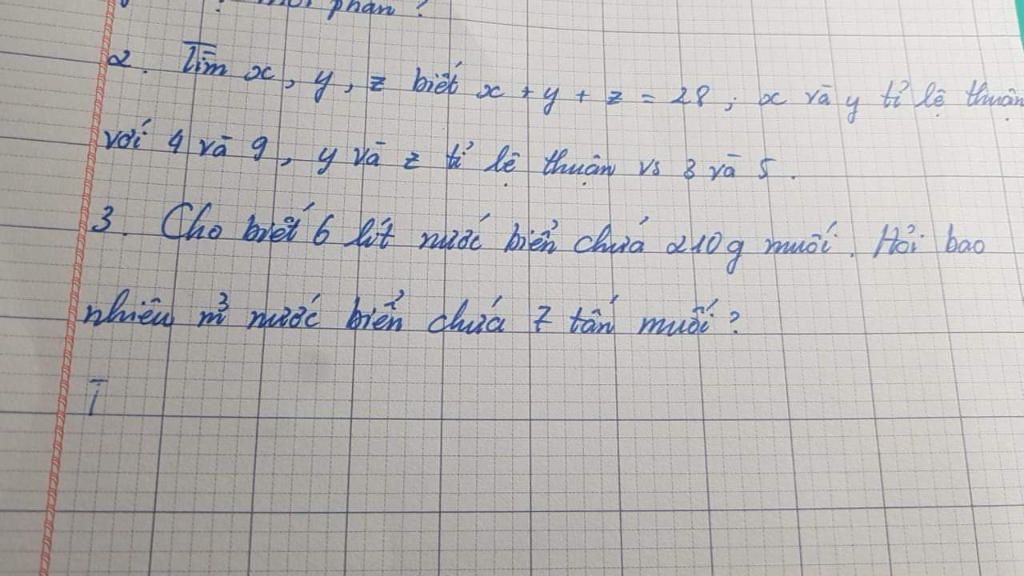 phần ?
2. Tìm x, y, z biết x + y + z = 28 ; x và y tỉ lệ thuận
với 4 và 9, y và z tỉ lệ thuận vs 3 và 5.
3. Cho biết 6 lít nước biển chứa 210g muối. Hỏi bao
nhiêu m³ nước biển chứa 7 tấn muối ?
T